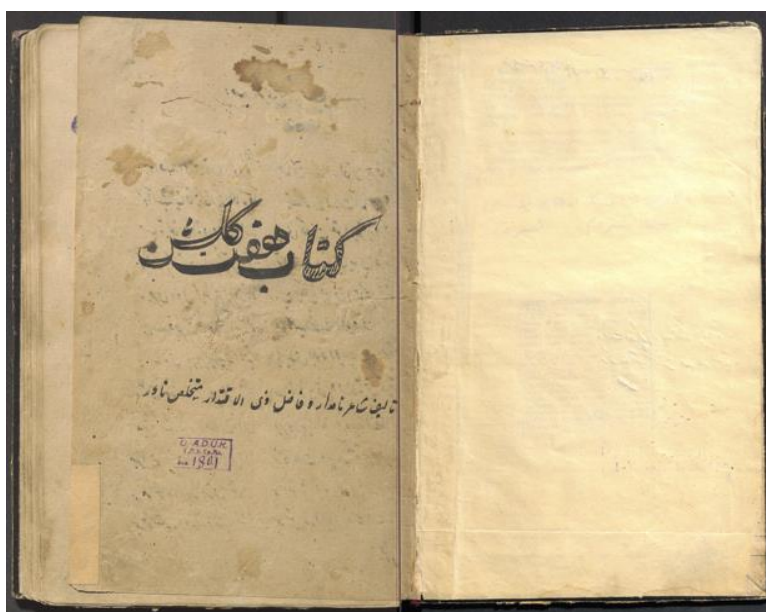 کتاب هفت گلشن
تالیف شاعر نامدار و فاضل ذی الاقتدار متخلص نادر
1891